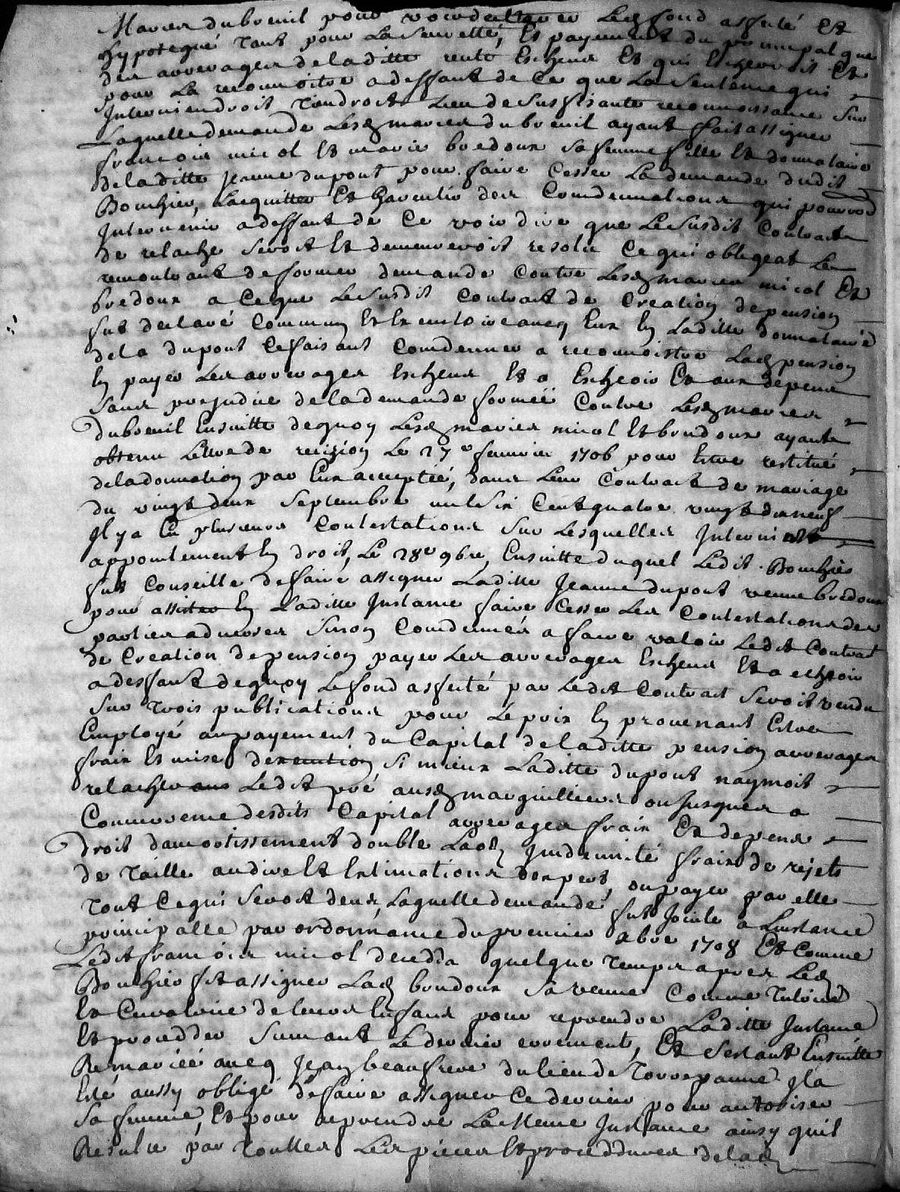 Maries dubreuil pour voir declarer Led fond affecté Et
hypotequé tant pour La seureté, Et payement du principal que
des arrerages de laditte rente Escheus Et qui Escheroit Et
pour Le reconnoitre a deffaut de Ce que La Sentence qui
Interviendroit tiendroit Lieu de Suffisante reconnoissance Sur
Laquelle demande Lesd maries dubreuil ayant fait assigner
francois micol Et marie bredoux Sa femme fille Et donnataire
de laditte Jeanne dupont pour faire Cesser La demande dudit
Bouchier, Lacquitter Et Garentir des Condemnations qui pourroit
Intervenir a deffaut de Ce voir dire que Le Susdit Contract
de relache Seroit Et demeureroit resolu Ce qui obligeat Le
remontrant de former demande Contre Lesd maries micol Et
bredoux a Ce que Le Susdit Contract de Creation de pension
fut declaré Commun Et Executoire avec Eux En Laditte donnataire
de la dupont Ce faisant Condemner a reconnoistre Lad pension
En payer Les arrerages Escheus Et a Escheoir Et aux depens
Sans prejudice de la demande formée Contre Lesd maries
dubreuil Ensuitte de quoy Lesd maries micol Et bredoux ayant
obtenu Lettre de recision Le 27e fevrier 1706 pour Estre restitué
de la donnation par Eux acceptée, dans Leur Contract de mariage
du vingt deux Septembre mil Six Cent quatre vingt dix neuf
Il y a Eu plusieurs Contestations Sur Lesquelles Intervint
appointement En droit, Le 28e 9bre, Ensuitte duquel Ledit Bouchier
fut Conseillé de faire assigner Laditte Jeanne dupont veuve bredoux
pour assister En Laditte Instance faire Cesser Les Contestations des
parties adverses Sinon Condemnée a faire valoir Ledit Contract
de Creation de pension payer Les arrerages Escheus Et a echeoir
a deffaut de quoy Le fond affecté par Ledit Contract Seroit vendu
Sur trois publications pour Le prix En provenant Estre
Employé au payement du Capital de laditte pension arrerages
frais Et mise dexecution Si mieux Laditte dupont naymoit
relacher Ledit pré ausd marguilliers ou Jusques a
Concurrence desdits Capital arrerages frais Et depens
droit damortissement double Laod Indemnité frais de rejets
de taille audivet Et Intimations dexpers, ou payer par elle
tout Ce qui Seroit deux Laquelle demande fut Jointe a Linstance
principalle par ordonnance du premier 1708 Et Comme
Ledit francois micol deceda quelque temps apres Led
Bouchier fit assigner Lad bredoux Sa veuve Comme tutrice
Et Curatrice de Leurs Enfans pour reprendre Laditte Instance
Et proceder Suivant Le dernier errement, Et Sestant Ensuitte
Remariée avec Jean beaufrere du lieu de Il a
Eté aussy obligé de faire assigner Ce dernier pour autoriser
Sa femme, Et pour reprendre La Meme Instance ainsy quil
Resulte par touttes Les pieces Et procedures de lad